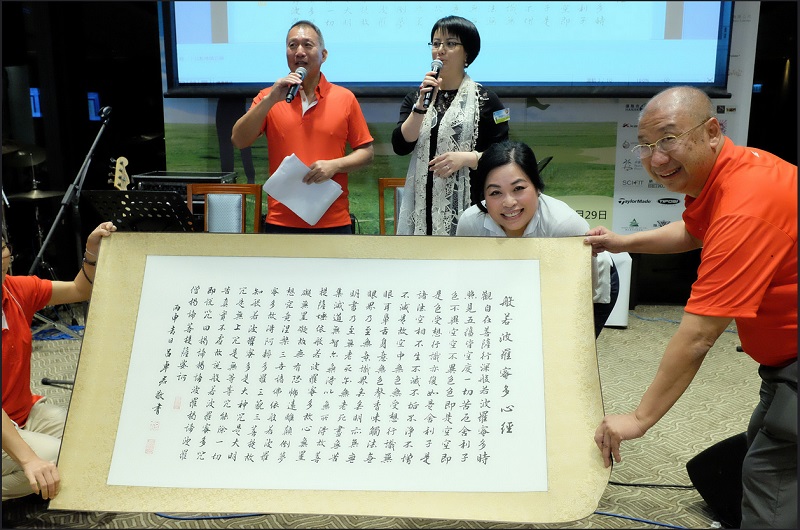 般若波羅蜜多心經
觀自在菩薩行深般若波羅蜜多時
照見五蘊皆空度一切苦厄舍利子
色不異空空不異色色即是空空即
是色受想行識亦復如是舍利子是
諸法空相不生不滅不垢不淨不增
不減是故空中無色無受想行識無
眼耳鼻舌身意無色聲香味觸法無
眼界乃至無意識界無無明亦無無
明盡乃至無老死亦無老死盡無苦
集滅道無智亦無得以無所得故菩
提薩埵依般若波羅蜜多故心無罣
礙無罣礙故無有恐怖遠離顛倒夢
想究竟涅槃三世諸佛依般若波羅
蜜多故得阿耨多羅三藐三菩提故
知般若波羅蜜多是大神咒是大明
咒是無上咒是無等等咒能除一切
苦真實不虛故說般若波羅蜜多咒
即說咒曰揭諦揭諦波羅揭諦波羅
僧揭諦菩提薩婆訶
丙申吉日呂君敬書
TaylorMade
月29日